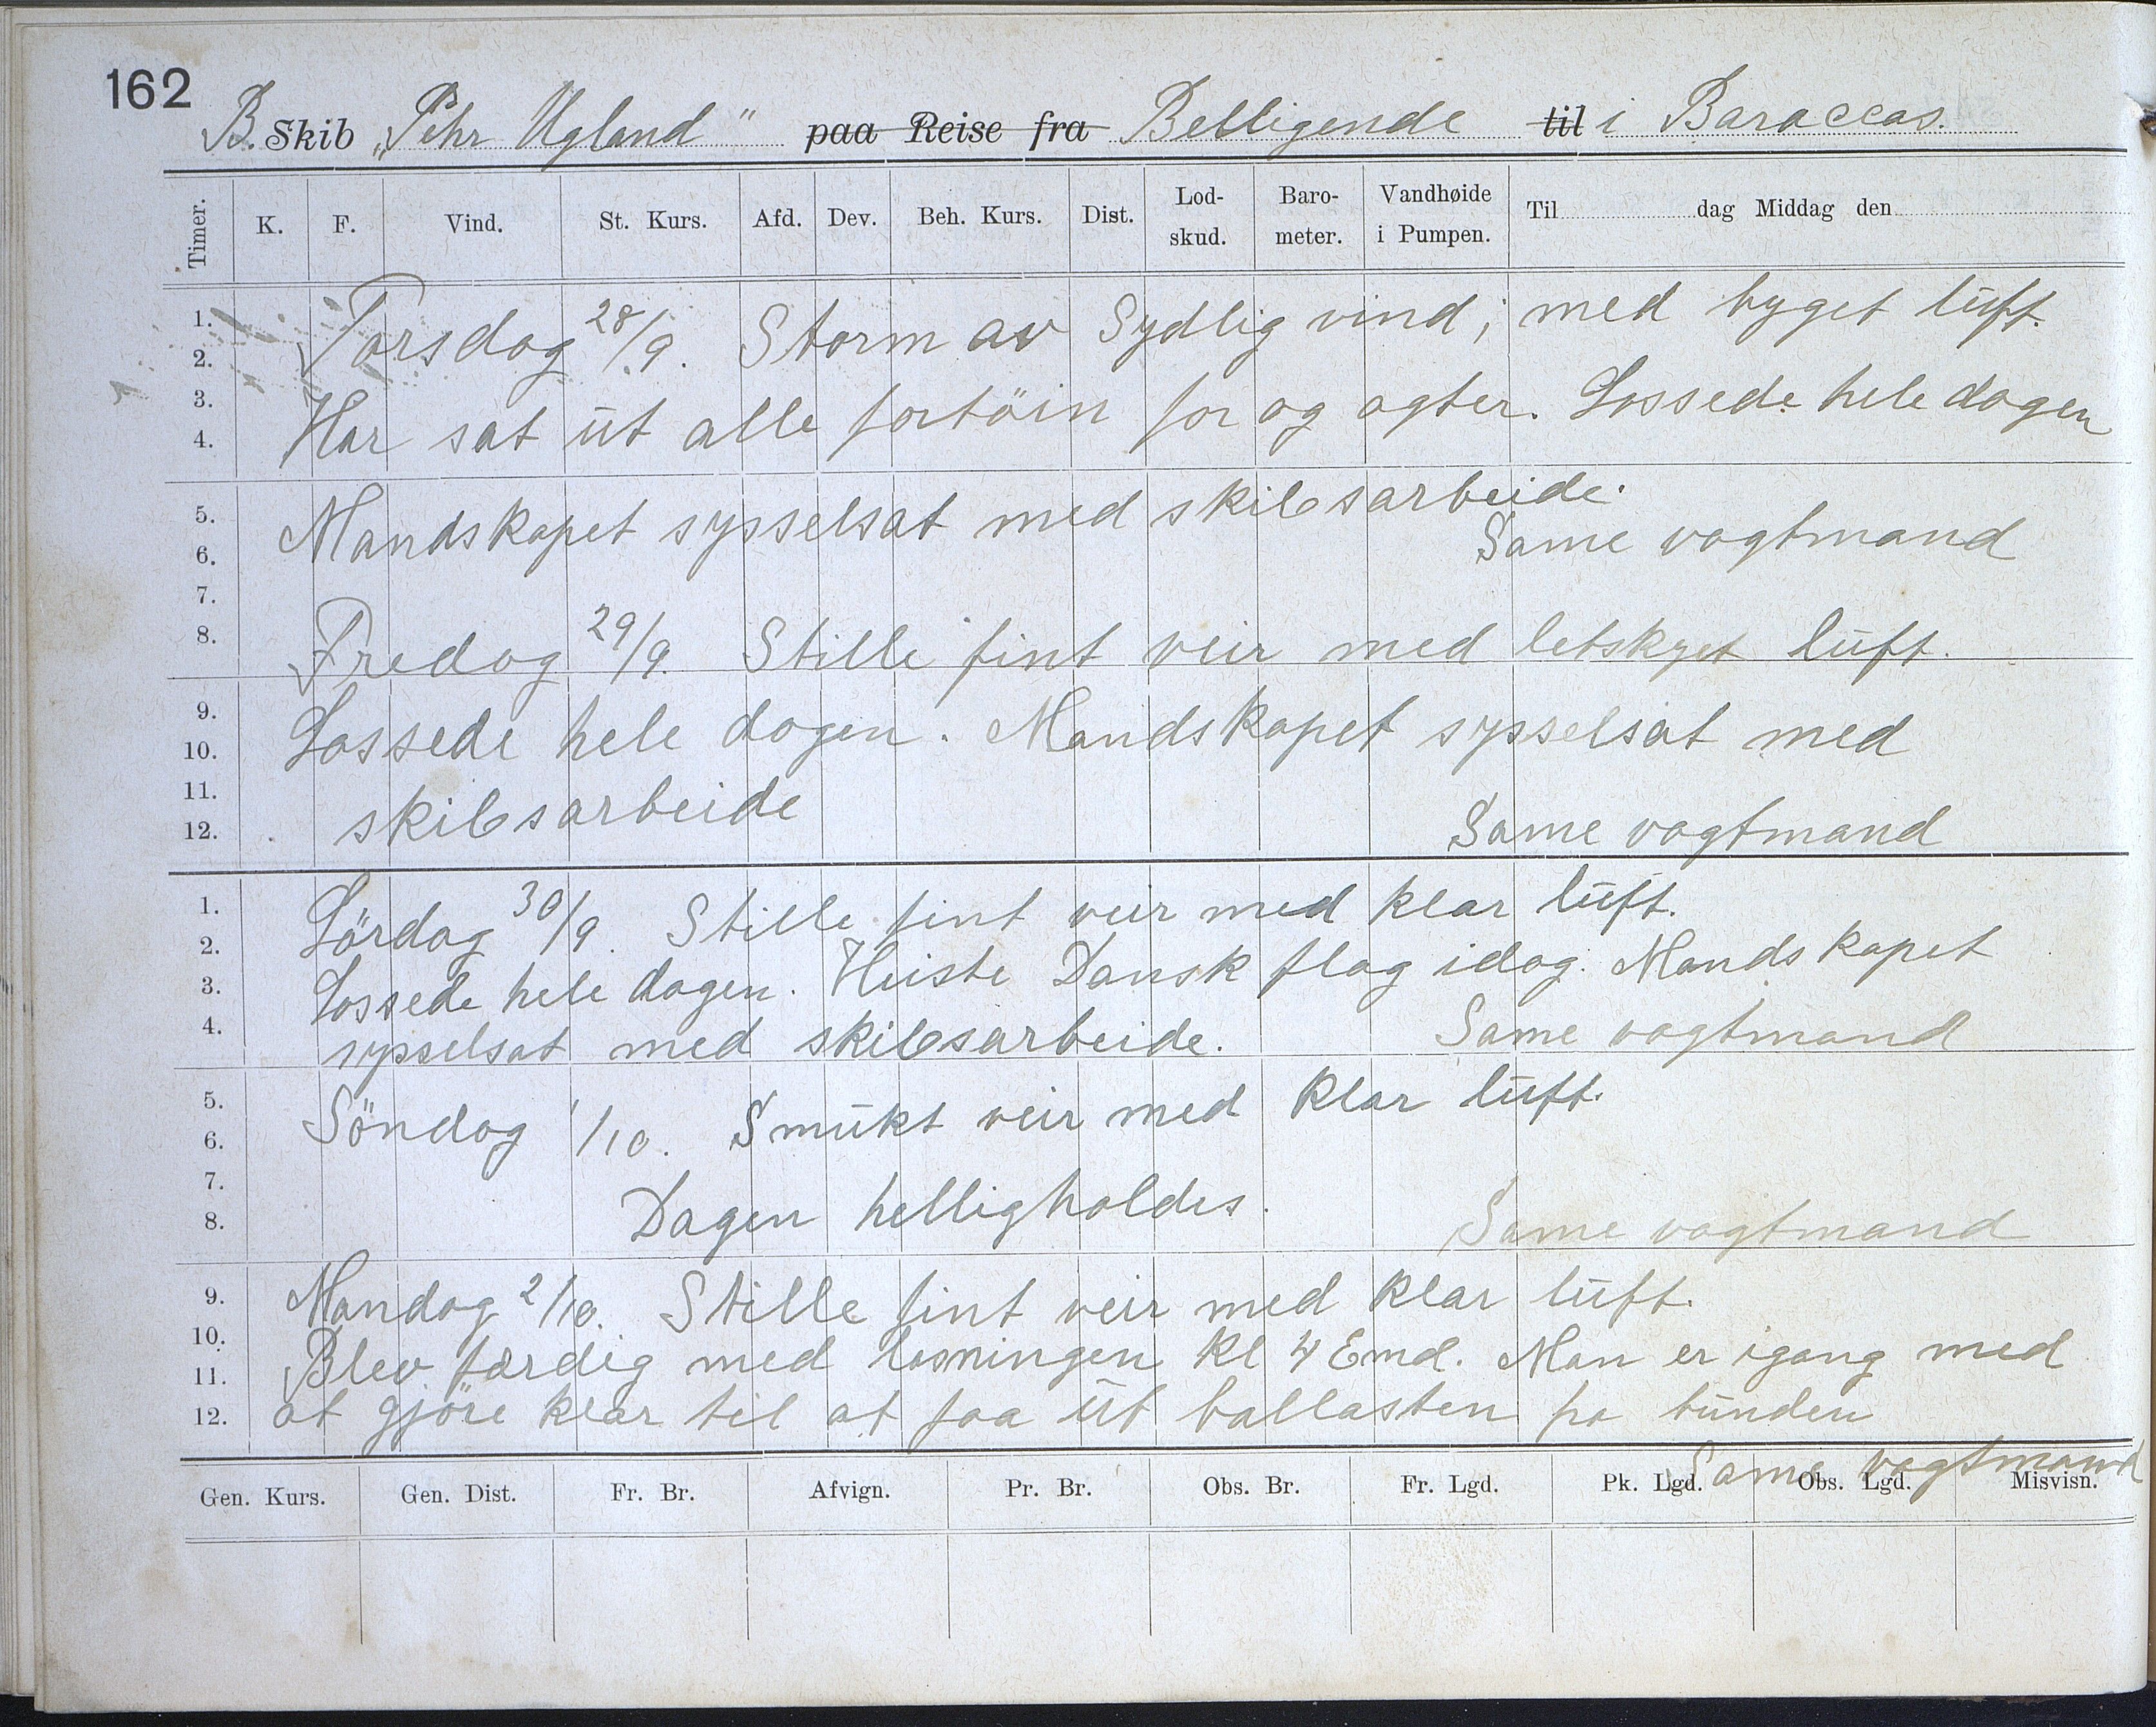 162
B. Skib „Pehr Ugland" paa Reise fra Belligende til i Baraccas.
Timer. K. F. Vind. St. Kurs. Afd. Dev. Beh. Kurs. Dist. Lod-skud. Baro-meter. Vandhøide i Pumpen. Til dag Middag den
1. Torsdag 28/9. Storm av Sydlig vind; med byget luft.
2.
3. Har sat ut alle fortöin for og agter. Lossede hele dagen
4.
5. Mandskapet sysselsat med skibsarbeide.
6. Same vagtmand
7.
8. Fredag 29/9. Stille fint veir med letskyet luft.
9. Lossede hele dagen. Mandskapet sysselsat med
10.
11. skibsarbeide
12. Same vagtmand
1. Lördag 30/9. Stille fint veir med klar luft.
2.
3. Lossede hele dagen. Heiste Dansk flag idag. Mandskapet
4. sysselsat med skibsarbeide. Same vagtmand
5. Söndag 1/10. Smukt veir med klar luft.
6.
7.
8. Dagen helligholdes. Same vagtmand
9. Mandag 2/10. Stille fint veir med klar luft.
10.
11. Blev færdig med losningen kl 4 Emd. Man er igang med
12. at gjöre klar til at faa ut ballasten pa bunden
Same vagtmand
Gen. Kurs. Gen. Dist. Fr. Br. Afvign. Pr. Br. Obs. Br. Fr. Lgd. Pk. Lgd. Obs. Lgd. Misvisn.